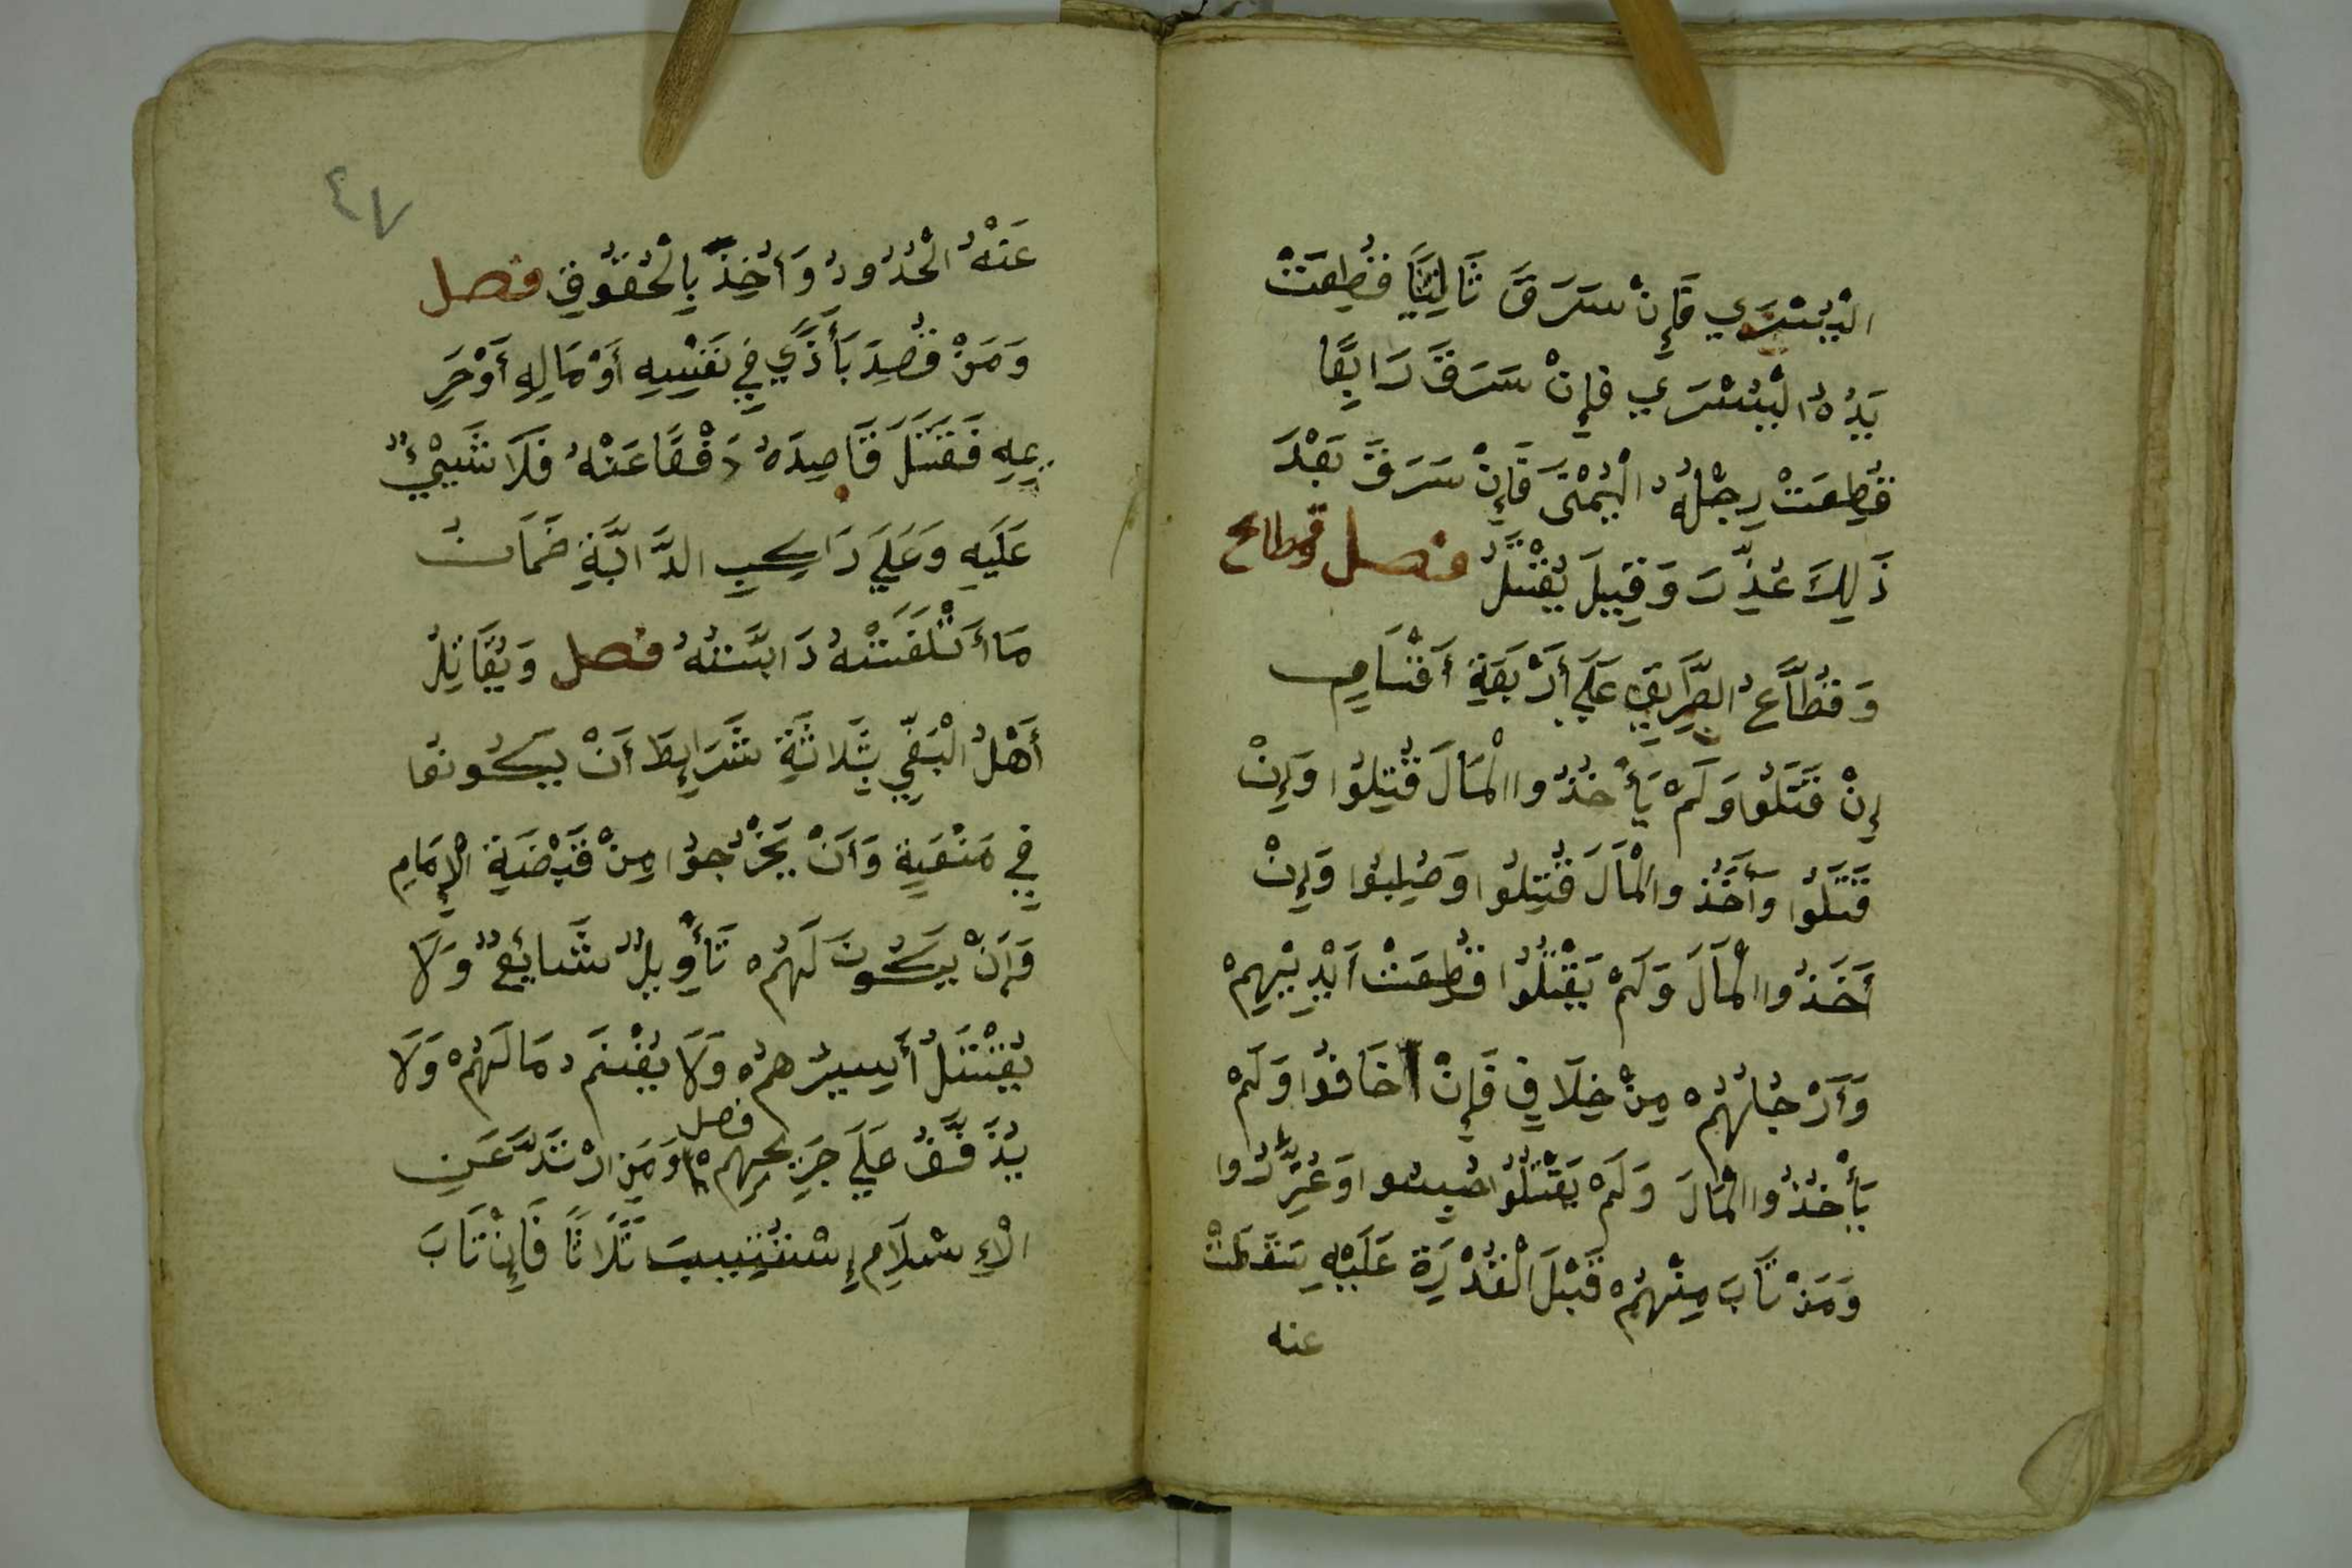 الْيُسْرَي فَإِنْ سَرَقَ ثَالِثًا قُطِعَتْ
يَدُهُ الْيُسْرَي فَإِنْ سَرَقَ رَابِعًا
قُطِعَتْ رِجْلُهُ الْيُمْنَى فَإِنْ سَرَقَ بَعْدَ
ذَلِكَ عُذِّرَ وَقِيلَ يُقْتَلُ فصل قطاع
وَقُطَّاعُ الطَّرِيقِ عَلَي أَرْبَعَةِ أَقْسَامٍ
إِنْ قَتَلُوا وَلَمْ يَأْخُذُوا الْمَالَ قُتِلُوا وَإِنْ
قَتَلُوا وَأَخَذُوا الْمَالَ قُتِلُوا وَصُلِبُوا وَإِنْ
أَخَذُوا الْمَالَ وَلَمْ يَقْتُلُوا قُطِعَتْ أَيْدِيْهِمْ
وَأَرْجُلُهُمْ مِنْ خِلَافٍ فَإِنْ أخَافُوا وَلَمْ
يَأْخُذُوا الْمَالَ وَلَمْ يَقْتُلُوا حُبِسُوا وَعُزِّرُوا
وَمَنْ تَابَ مِنْهُمْ قَبْلَ الْقُدْرَةِ عَلَيْهِ سَقَطَتْ
عنه
٤٧
عَنْهُ الْحُدُودُ وَأُخِذَ بِالْحُقُوقِ فصل
وَمَنْ قُصِدَ بَأَذًي فِي نَفْسِهِ أَوْ مَالِهِ أَوْ حَرِ
يمِهِ فَقَتَلَ قَاصِدَهُ دَفْعًا عَنْهُ فَلَا شَيْئٌ
عَلَيَهِ وَعَلَي رَاكِبِ الدَّابَّةِ ضَمَانُ
مَا أَتْلَفَتْهُ دَابَّتُهُ فصل وَيُقَاتِلُ
أَهْلُ الْبَغْيِ بِثَلَاثَةِ شَرَايِطَ أَنْ يَكُونُوا
فِي مَنْعَةٍ وَأَنْ يَخْرُجُوا مِنْ قَبْضَةِ الْإِمَامِ
وَأَنْ يَكُونَ لَهُمْ تَأْوِيلٌ شَايِعٌ وَلَا
يُقْتَلُ أَسِيرُهُمْ وَلَا يُغْنَمُ مَالَهُمْ وَلَا
يُذَفَّفُ عَلَي جَرِيحِهِمْ فصل وَمَنِ ارْتَدَّ عَنِ
الْإِسْلَامِ إِسْتُتِيبَ ثَلَاثًا فَإِنْ تَابَ